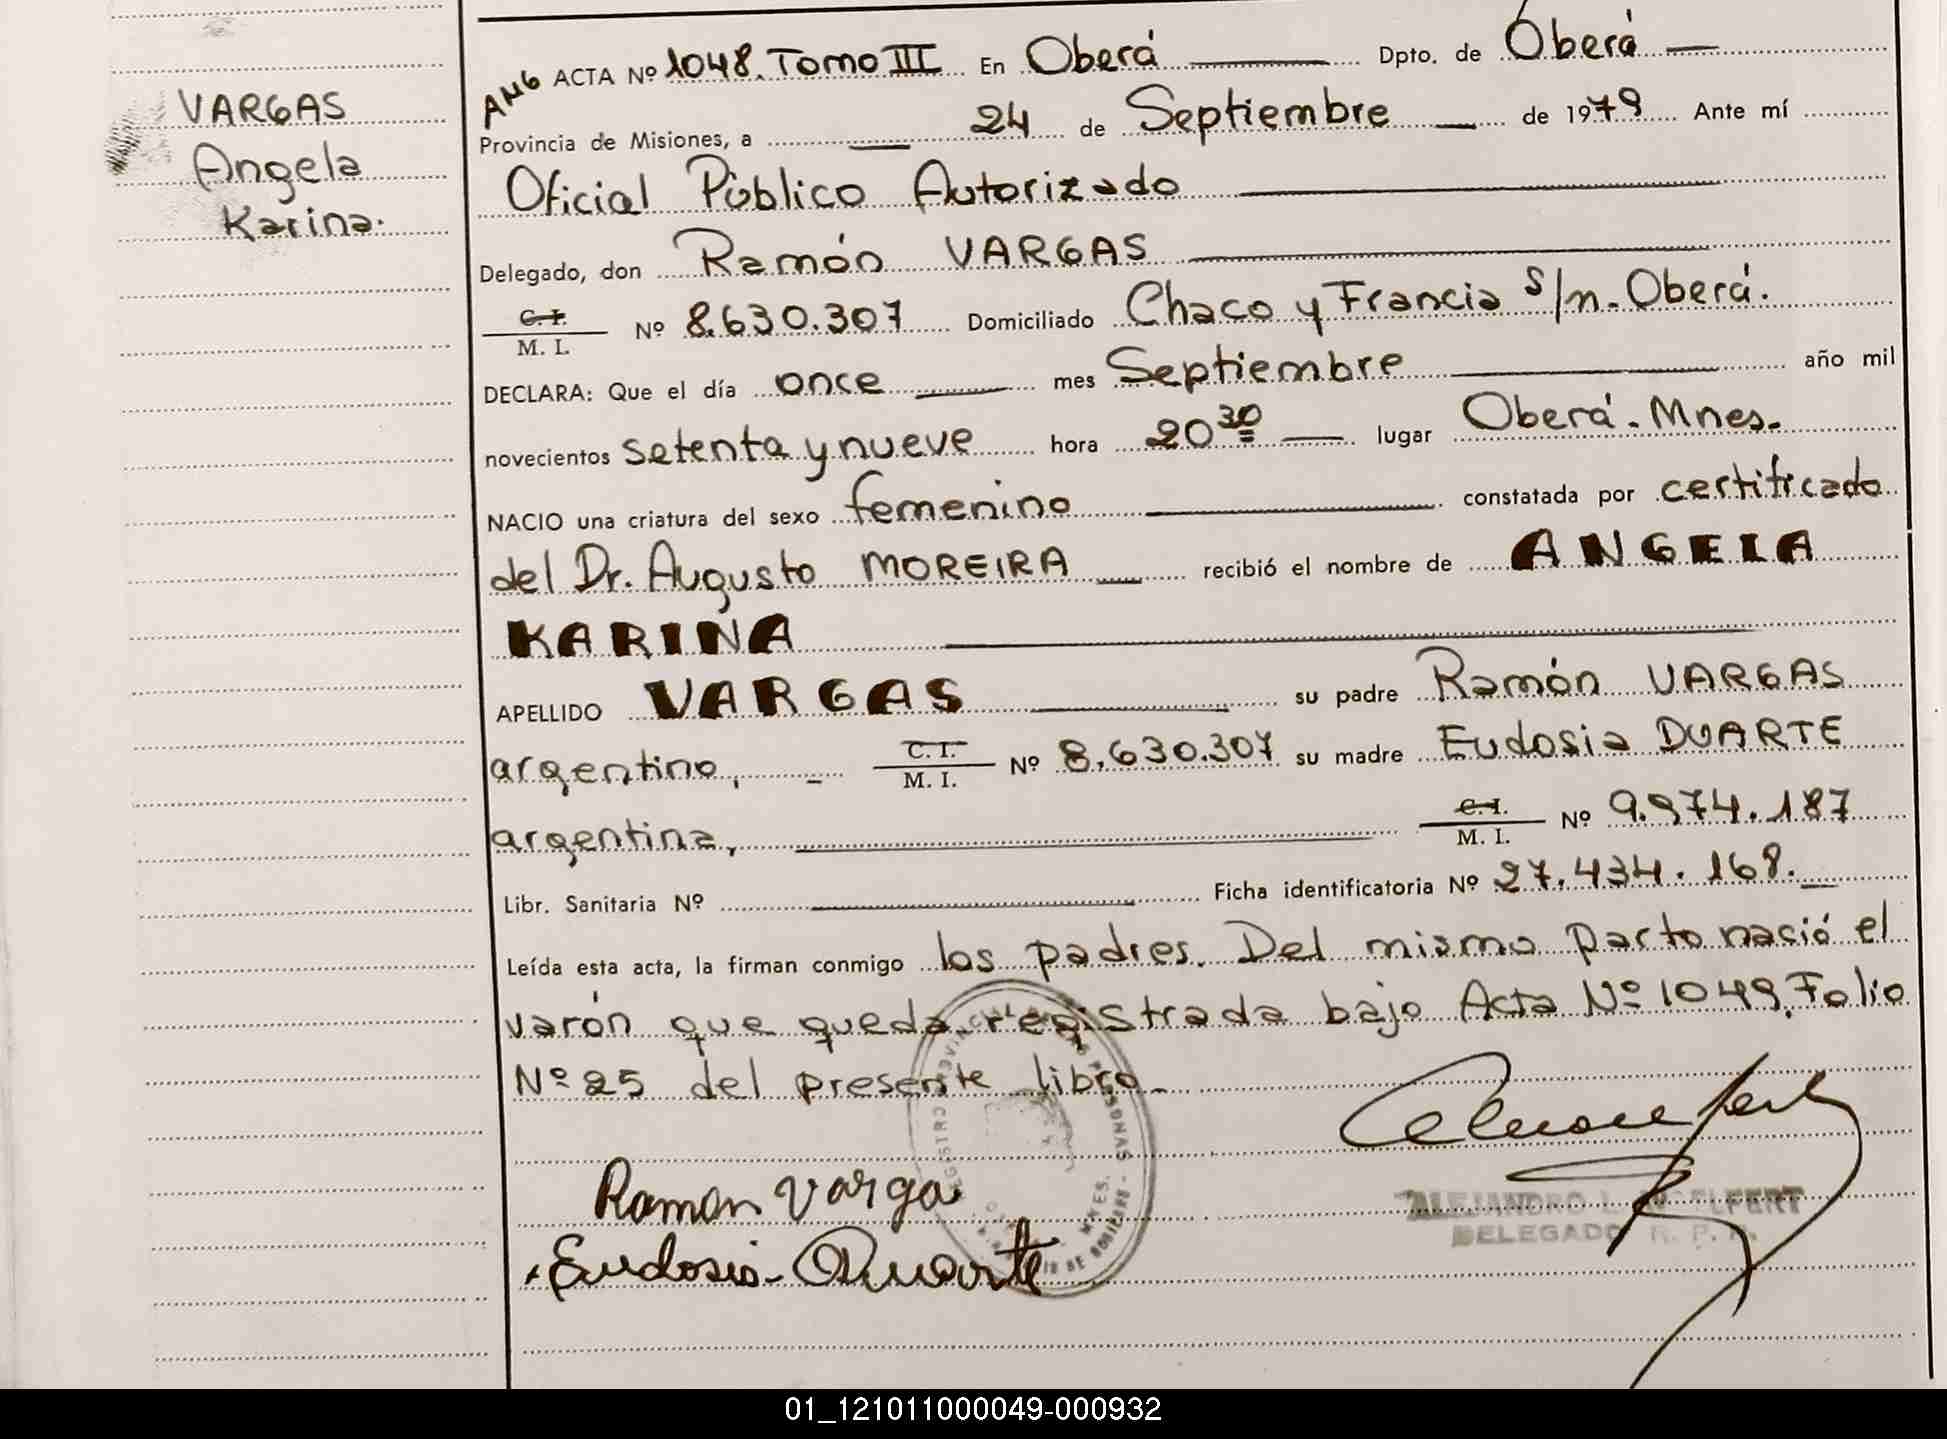 VARGAS
Angela
Karina.
ACTA Nº 1048. Tomo III En Oberá Dpto. de Oberá
Provincia de Misiones, a 24 de Septiembre de 1979 Ante mí
Oficial Público Autorizado
Delegado, don Ramón VARGAS
C. I.
M. I. Nº 8.630.307 Domiciliado Chaco y Francia s/n. Oberá.
DECLARA: Que el día once mes Septiembre año mil
novecientos setenta y nueve hora 20 30 lugar Oberá. Mnes.
NACIO una criatura del sexo femenino constatada por certificado
del Dr. Augusto MOREIRA recibió el nombre de ANGELA
KARINA
APELLIDO VARGAS su padre Ramón VARGAS
argentino, C. I. M. I. Nº 8.630.307 su madre Eudosia DUARTE
argentina, C. I. M. I. Nº 9.974.187
Libr. Sanitaria Nº Ficha identificatoria Nº 27.434.168.
Leída esta acta, la firman conmigo los padres. Del mismo parto nació el
varón que queda registrada bajo Acta Nº 1049, Folio
Nº 25 del presente libro
Ramon Varga
Eudosia Duarte
DELEGADO R. P.
01_121011000049-000932